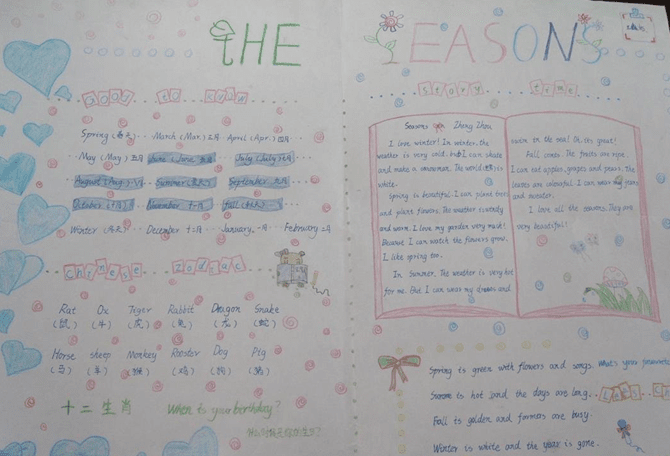 THE SEASONS
story time
Spring (春天) March (Mar.) 三月 April (Apr.) 四月
May (May) 五月 June (June 六月 July (July) 七月
August (Aug.) 八月 Summer (夏天) September 九月
October 十月 November 十一月 fall (秋天)
Winter (冬天) December 十二月 January 一月 February 二月
chinese zodiac
Rat Ox Tiger Rabbit Dragon Snake
(鼠) (牛) (虎) (兔) (龙) (蛇)
Horse sheep Monkey Rooster Dog Pig
(马) (羊) (猴) (鸡) (狗) (猪)
十二生肖 When is your birthday?
Seasons Zhang Zhen
I love winter! In winter, the
weather is very cold. But I can skate
and make a snowman. The world is in
white.
Spring is beautiful. I can plant trees
and plant flowers. The weather is windy
and warm. I love my garden very much!
Because I can watch the flowers grow.
I like spring too.
In Summer. The weather is very hot
for me. But I can wear my dresses and
swim in the sea! Oh, its great!
Fall comes. The fruits are ripe.
I can eat apples, grapes and pears. The
leaves are colourful. I can wear my jeans
and sweater.
I love all the seasons. They are
very beautiful!
Spring is green with flowers and songs. What's your favourite
Summer is hot and the days are long.
Fall is golden and farmers are busy.
Winter is white and the year is gone.